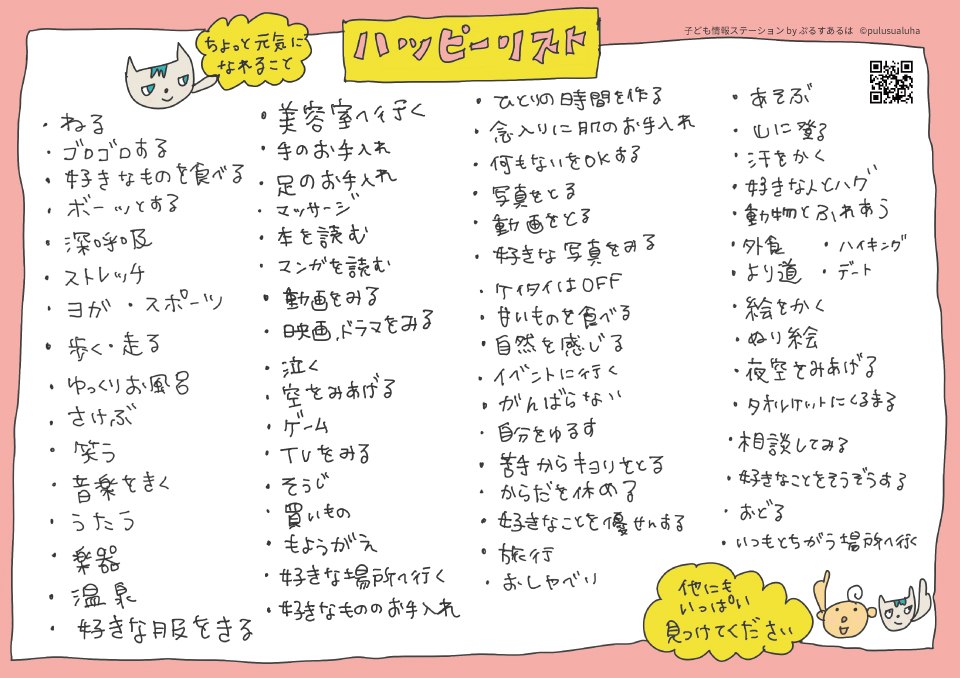 子ども情報ステーション by ぷるすあるは ©pulusualuha
ハッピーリスト
ちょっと元気に
なれること
・ねる
・ゴロゴロする
・好きなものを食べる
・ボーッとする
・深呼吸
・ストレッチ
・ヨガ ・スポーツ
・歩く・走る
・ゆっくりお風呂
・さけぶ
・笑う
・音楽をきく
・うたう
・楽器
・温泉
・好きな服をきる
・美容室へ行く
・手のお手入れ
・足のお手入れ
・マッサージ
・本を読む
・マンガを読む
・動画をみる
・映画,ドラマをみる
・泣く
・空をみあげる
・ゲーム
・TVをみる
・そうじ
・買いもの
・もようがえ
・好きな場所へ行く
・好きなもののお手入れ
・ひとりの時間を作る
・念入りに肌のお手入れ
・何もないをOKする
・写真をとる
・動画をとる
・好きな写真をみる
・ケイタイはOFF
・甘いものを食べる
・自然を感じる
・イベントに行く
・がんばらない
・自分をゆるす
・苦手からキョリをとる
・からだを休める
・好きなことを優せんする
・旅行
・おしゃべり
・あそぶ
・山に登る
・汗をかく
・好きな人とハグ
・動物とふれあう
・外食 ・ハイキング
・より道 ・デート
・絵をかく
・ぬり絵
・夜空をみあげる
・タオルケットにくるまる
・相談してみる
・好きなことをそうぞうする
・おどる
・いつもとちがう場所へ行く
他にも
いっぱい
見つけてください